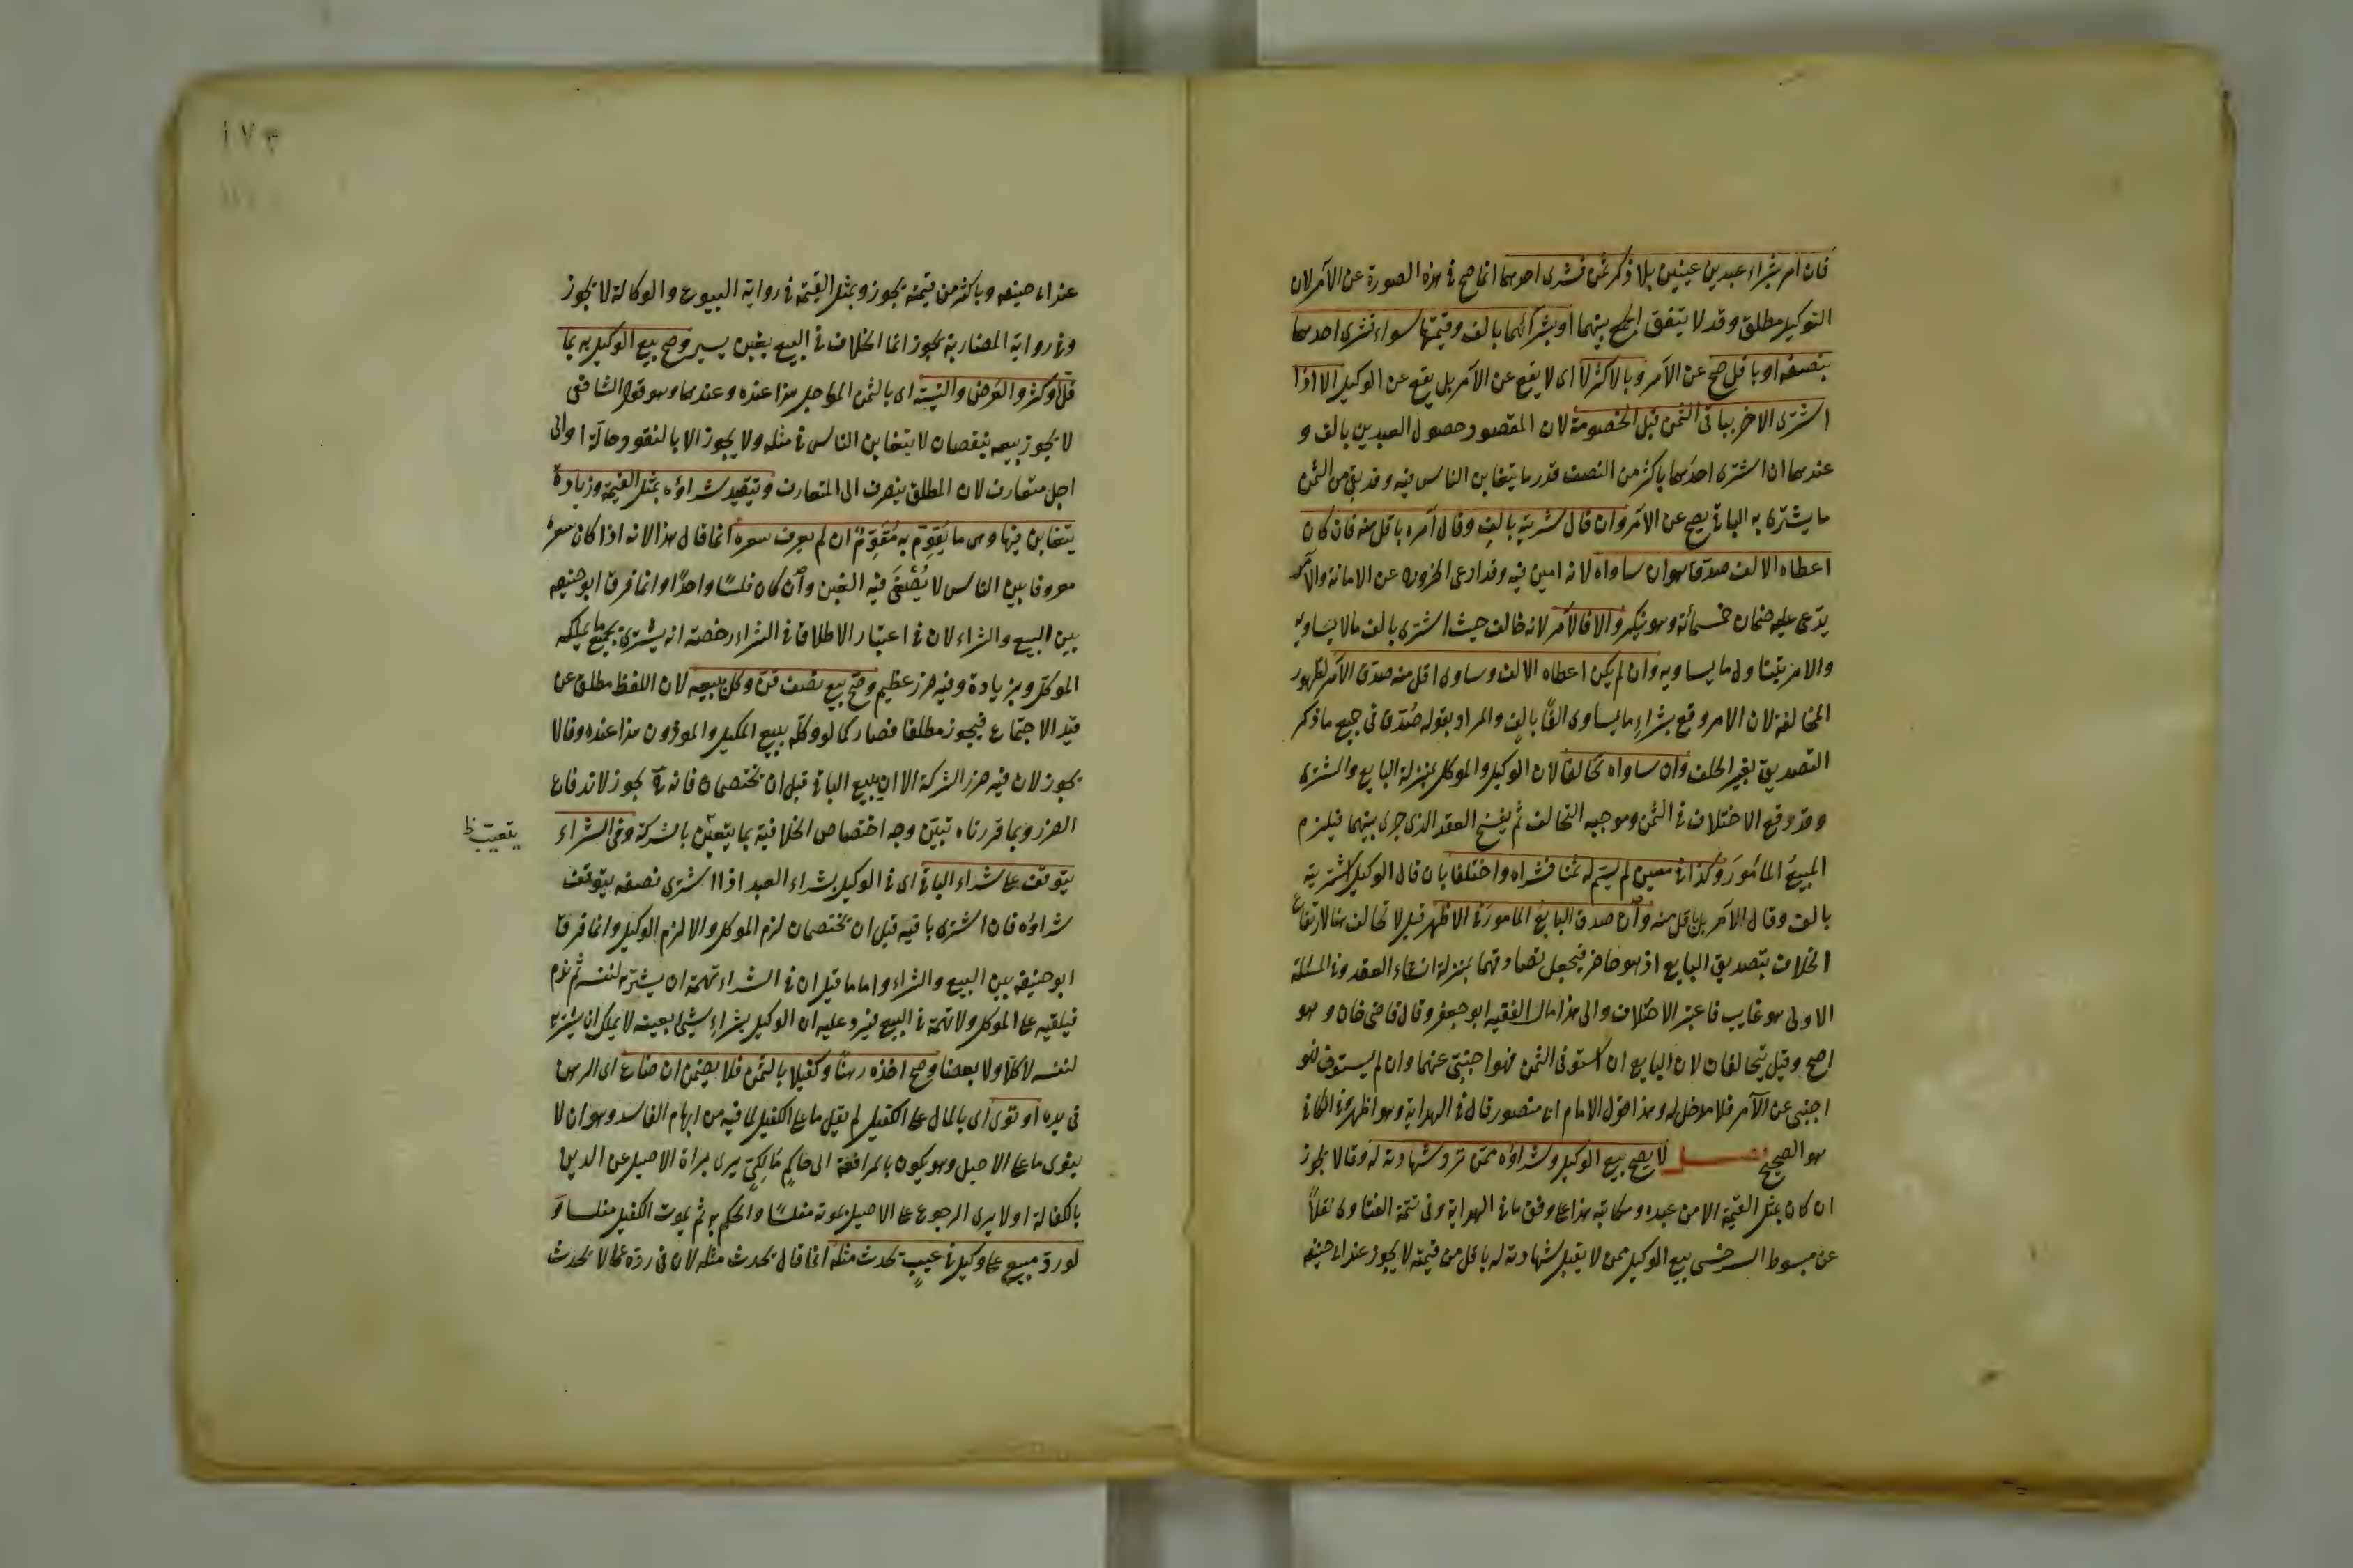 فان امر بشراء عبدين عينين بلا ذكر ثمن فشرى احدهما انما صح في هذه الصورة عن الآمر لان
التوكيل مطلق وقد لا يتفق الجمع بينهما او بشرائهما بالف وقيمتهما سواء فشرى احدهما
بنصفه او باقل صح عن الآمر وبالاكثر لا اى لا يقع عن الآمر بل يقع عن الوكيل الا اذا
اشترى الاخر بباقى الثمن قبل الخصومة لان المقصود حصول العبدين بالف و
عندهما ان اشترى احدهما باكثر من النصف قدر ما يتغابن الناس فيه وقد بقى من الثمن
ما يشترى به الباقى يصح عن الآمر وان قال شريته بالف وقال آمره باقل منه فان كان
اعطاه الالف صدق هو ان ساواه لانه امين فيه وقد ادعى الخروج عن الامانة والآمر
يدعى عليه ضمان خمسمائة وهو ينكر والا فالآمر لانه خالف حيث اشترى بالف ما لا يساويه
والامر يتناول ما يساويه وان لم يكن اعطاه الالف وساوى اقل منه صدق الآمر لظهور
المخالفة لان الامر وقع بشراء ما يساوى الفًا بالف والمراد بقوله صُدّق فى جميع ما ذكر
التصديق بغير الحلف وان ساواه تحالفا لان الوكيل والموكل بمنزلة البايع والمشترى
وقد وقع الاختلاف فى الثمن وموجبه التحالف ثم يفسخ العقد الذى جرى بينهما فيلزم
المبيعُ المأمورَ وكذا فى معين لم يسم له ثمنا فشراه واختلفا بان قال الوكيل اشتريته
بالف وقال الآمر بل باقل منه وان صدق البايع المامور فى الاظهر قيل لا تحالف هنا لارتفاع
الخلاف بتصديق البايع اذ هو حاضر فيجعل تصادقهما بمنزلة انشاء العقد وفى المسئلة
الاولى هو غايب فاعتبر الاختلاف والى هذا مال الفقيه ابو جعفر وقال قاضى خان وهو
اصح وقيل يتحالفان لان البايع ان استوفى الثمن فهو اجنبى عنهما وان لم يستوف فهو
اجنبى عن الآمر فلا مدخل له وهذا قول الامام ابى منصور قال فى الهداية وهو اظهر وفى الكافى
هو الصحيح فصل لا يصح بيع الوكيل وشراؤه ممن ترد شهادته له وقالا يجوز
ان كان بمثل القيمة الا من عبده ومكاتبه هذا على وفق ما فى الهداية وفى تتمة الفتاوى نقلاً
عن مبسوط السرخسى بيع الوكيل ممن لا يقبل شهادته له باقل من قيمته لا يجوز عند ابى حنيفه
١٧٣
عند ابى حنيفه وباكثر من قيمته يجوز وبمثل القيمة فى رواية البيوع والوكالة لا يجوز
وفى رواية المضاربة يجوز انما الخلاف فى البيع بغبن يسير وصح بيع الوكيل به بما
قلّ او كثر والعَرض والنسيئة اى بالثمن المؤجل هذا عنده وعندهما وهو قول الشافعى
لا يجوز بيعه بنقصان لا يتغابن الناس فى مثله ولا يجوز الا بالنقود حالّة او الى
اجل متعارف لان المطلق ينصرف الى المتعارف وتقيد شراؤه بمثل القيمة وزيادة
يتغابن فيها وهى ما يُقَوِّم به مُقَوِّمٌ ان لم يعرف سعره انما قال هذا لانه اذا كان سعره
معروفا بين الناس لا يُعْفَى فيه الغبن وان كان فلسًا واحدًا وانما فرق ابو حنيفه
بين البيع والشراء لان فى اعتبار الاطلاق فى الشراء رخصة انه يشترى بجميع ما يملكه
الموكل وبزيادة وفيه ضرر عظيم وصح بيع نصف قنّ وكّل ببيعه لان اللفظ مطلق عن
قيد الاجتماع فيجوز مطلقا فصار كما لو وكله ببيع المكيل والموزون هذا عنده وقالا
يجوز لان فيه ضرر الشركة الا ان يبيع الباقى قبل ان يختصمان فانه يجوز لاندفاع
الضرر وبما قررناه تبيّن وجه اختصاص الخلافية بما يتعيّن بالشركة وفى الشراء
يتعيّب ظ
يتوقف على شراء الباقى اى فى الوكيل بشراء العبد اذا اشترى نصفه يتوقف
شراؤه فان اشترى باقيه قبل ان يختصمان لزم الموكل والا لزم الوكيل وانما فرق
ابو حنيفه بين البيع والشراء واما ما قيل ان فى الشراء تهمة ان يشتريه لنفسه ثم ندم
فيلقيه على الموكل ولا تهمة فى البيع فيرد عليه ان الوكيل بشراء شئ بعينه لا يملك ان يشتريه
لنفسه لا كلًا ولا بعضا وصح اخذه رهنًا وكفيلا بالثمن فلا يضمن ان ضاع اى الرهن
فى يده او توى اى بالمال على الكفيل لم يقل ما على الكفيل لما فيه من ايهام الفاسد وهو ان لا
يتوى ما على الاصيل وهو يكون بالمرافعة الى حاكمٍ مالكىّ يرى براة الاصيل عن الدين
بالكفالة او لا يرى الرجوع على الاصيل بموته مفلسًا والحكم به ثم يموت الكفيل مفلسا و
لو رد مبيع على وكيل فى عيب يحدث مثله انما قال يحدث مثله لان فى رده بما لا يحدث